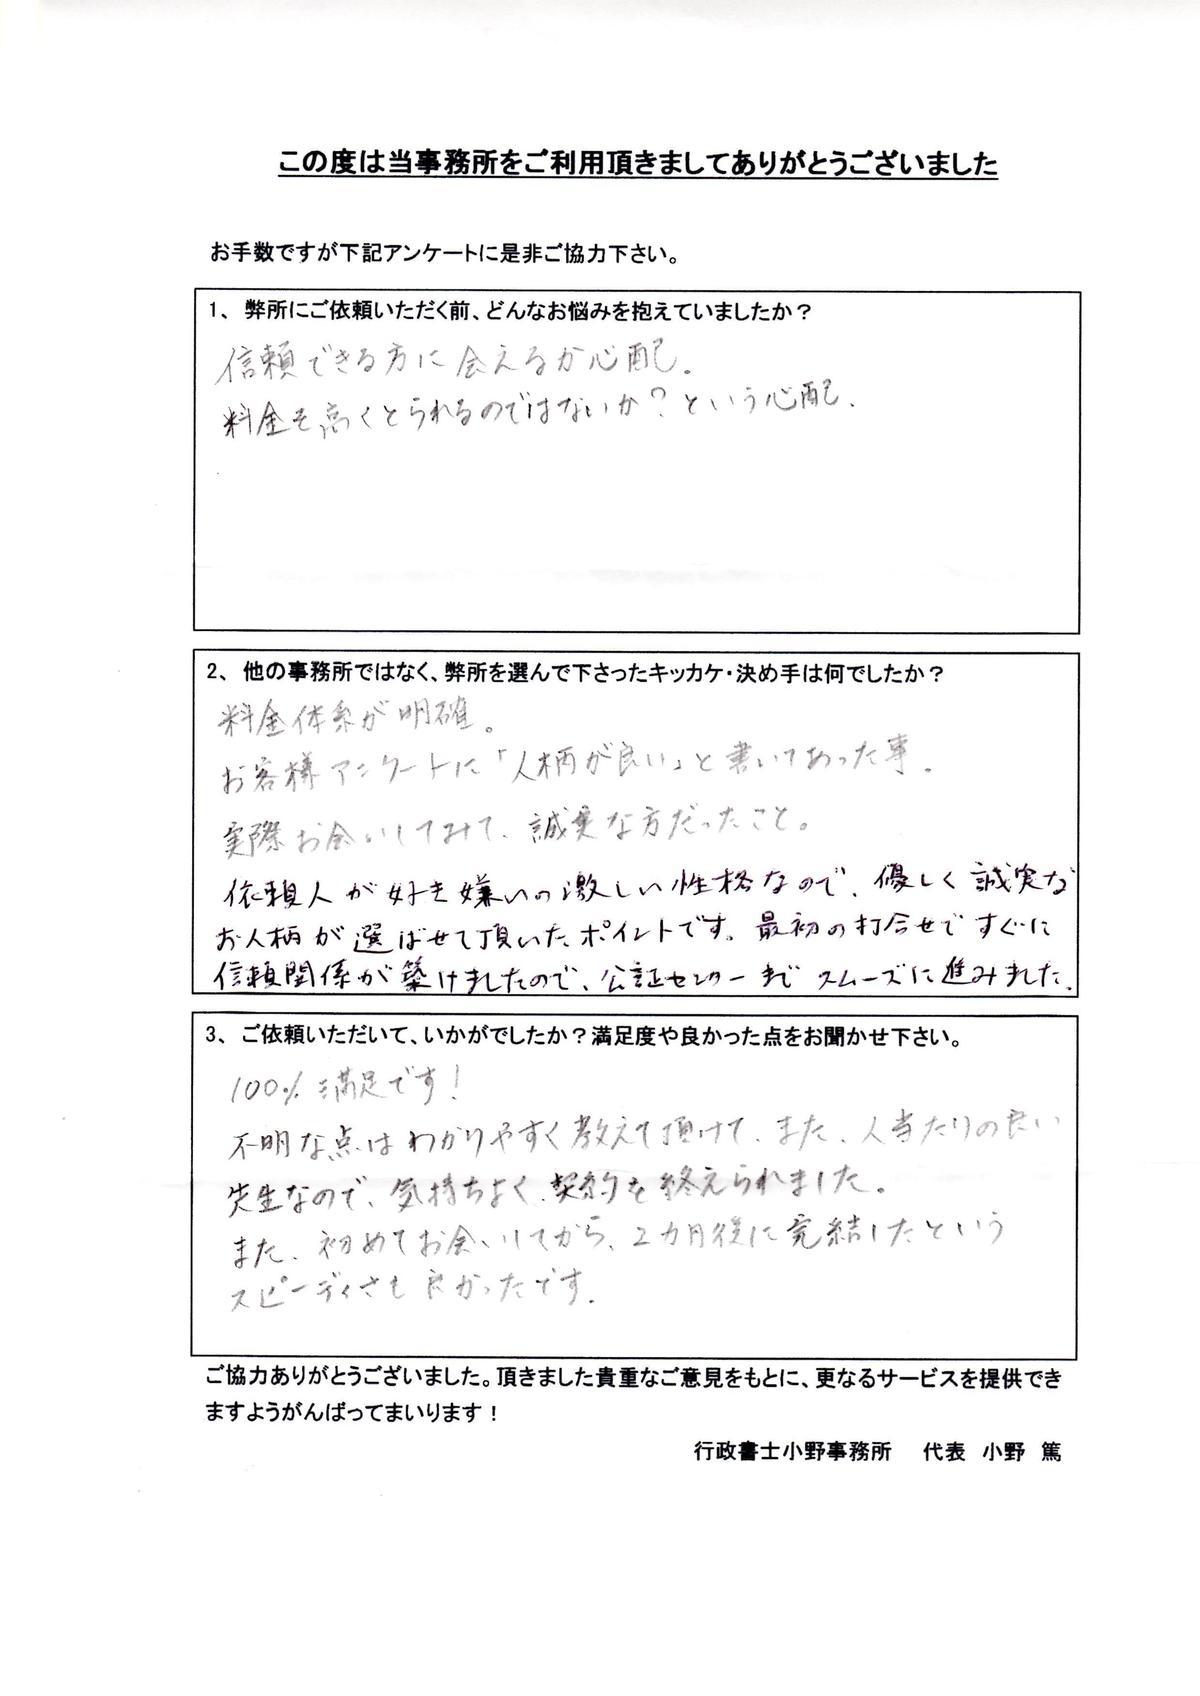 この度は当事務所をご利用頂きましてありがとうございました
お手数ですが下記アンケートに是非ご協力下さい。
1、 弊所にご依頼いただく前、どんなお悩みを抱えていましたか？
信頼できる方に会えるか心配。
料金を高くとられるのではないか？という心配。
2、 他の事務所ではなく、弊所を選んで下さったキッカケ・決め手は何でしたか？
料金体系が明確。
お客様アンケートに「人柄が良い」と書いてあった事。
実際お会いしてみて、誠実な方だったこと。
依頼人が好き嫌いの激しい性格なので、優しく誠実な
お人柄が選ばせて頂いたポイントです。最初の打合せですぐに
信頼関係が築けましたので、公証センターまでスムーズに進みました。
3、 ご依頼いただいて、いかがでしたか？満足度や良かった点をお聞かせ下さい。
100%満足です！
不明な点はわかりやすく教えて頂けて、また、人当たりの良い
先生なので、気持ちよく、契約を終えられました。
また、初めてお会いしてから、2カ月後に完結したという
スピーディさも良かったです。
ご協力ありがとうございました。頂きました貴重なご意見をもとに、更なるサービスを提供でき
ますようがんばってまいります！
行政書士小野事務所 代表 小野 篤